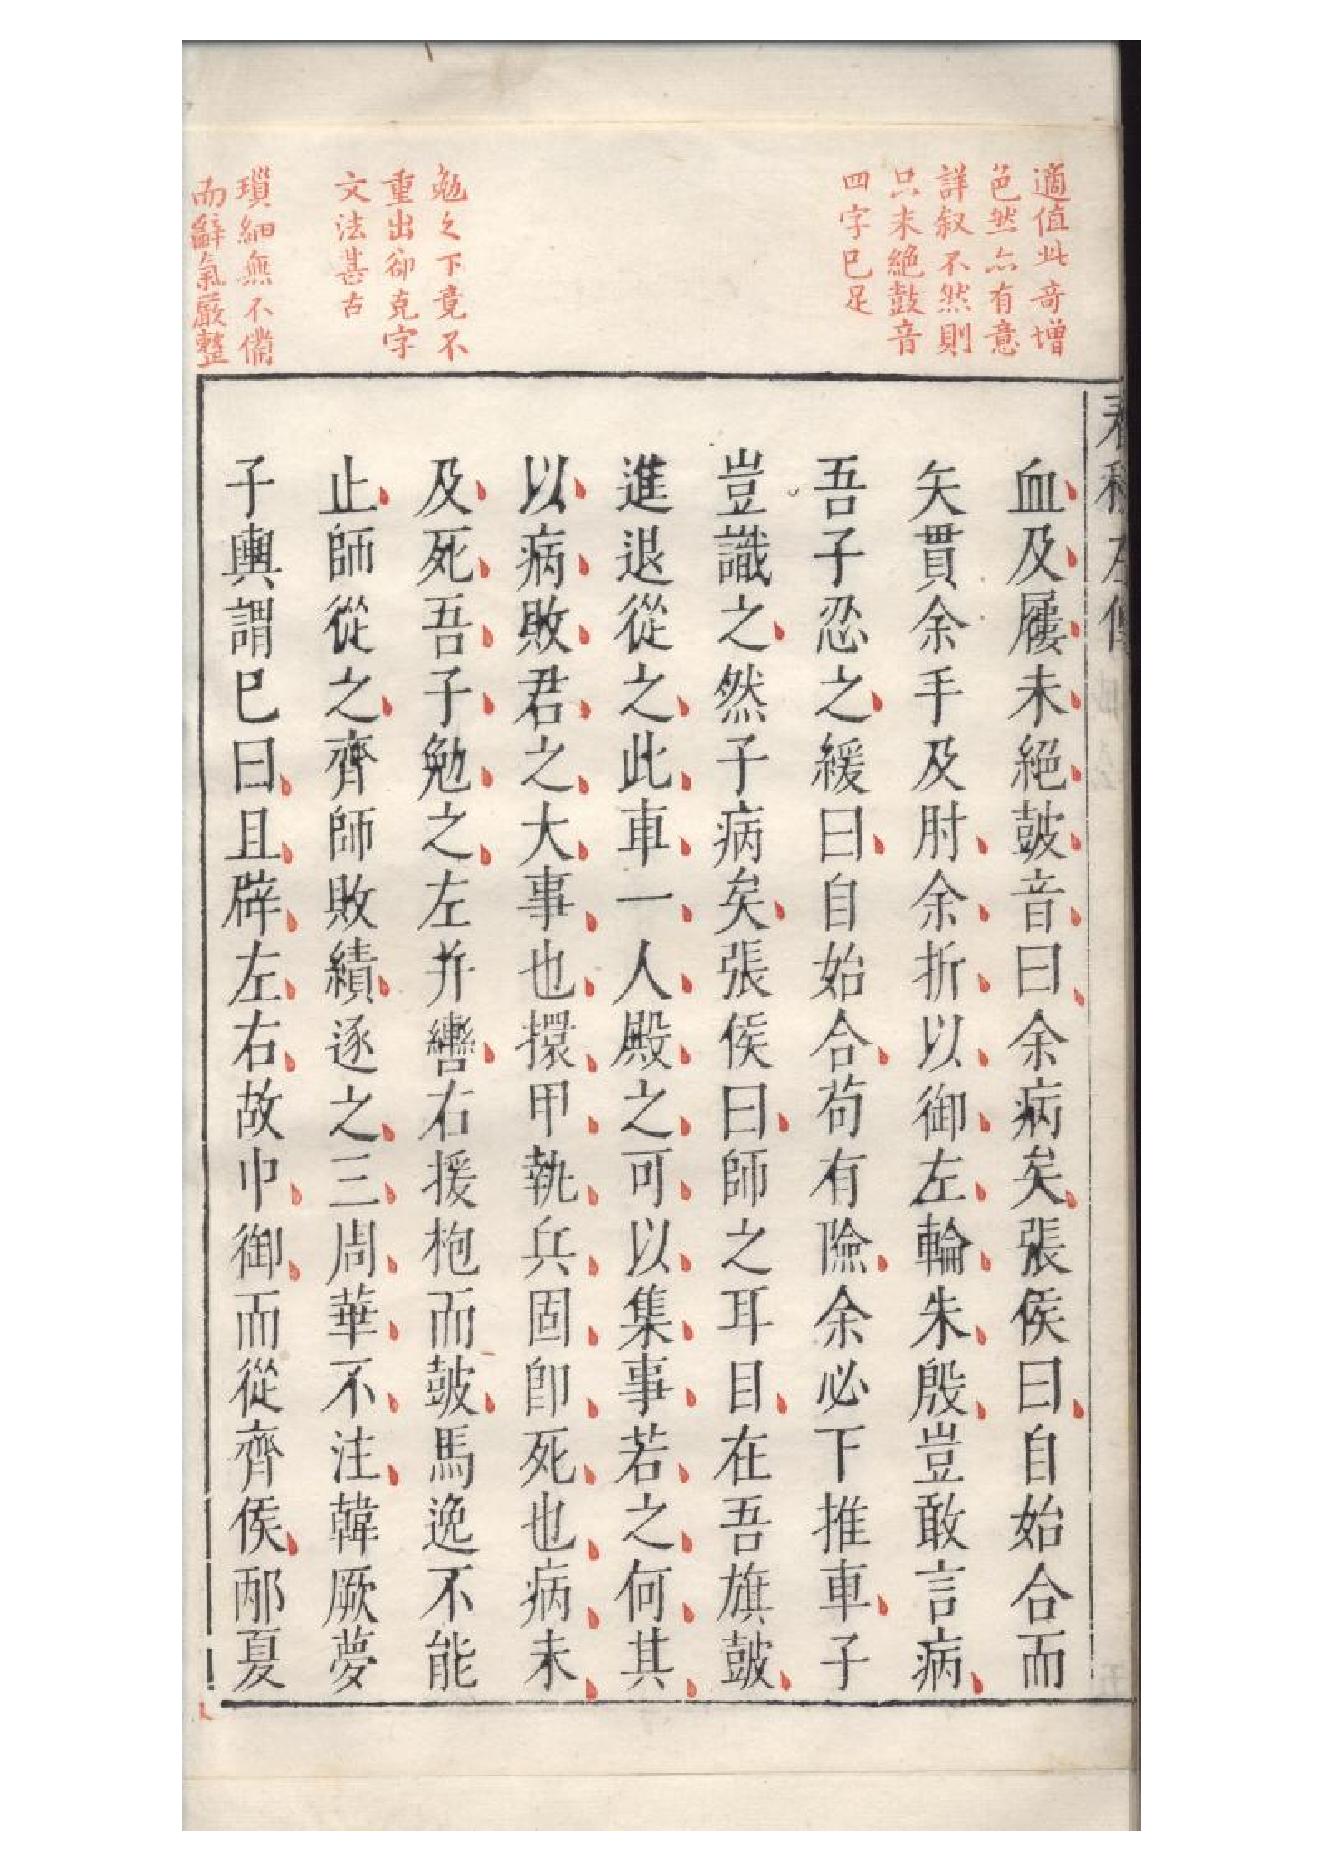 適值此奇增
芭然亦有意
詳叙不然則
只未絶鼓音
四字已足
勉之下竟不
重出卻克字
文法甚古
瑣細無不備
而辭氣嚴整
春秋左傳
血及屨未絕鼓音曰余病矣張侯曰自始合而
矢貫余手及肘余折以御左輪朱殷豈敢言病
吾子忍之緩曰自始合苟有險余必下推車子
豈識之然子病矣張侯曰師之耳目在吾旗鼓
進退從之此車一人殿之可以集事若之何其
以病敗君之大事也擐甲執兵固卽死也病未
及死吾子勉之左并轡右援枹而鼓馬逸不能
止師從之齊師敗績逐之三周華不注韓厥夢
子輿謂巳曰且辟左右故中御而從齊侯邴夏